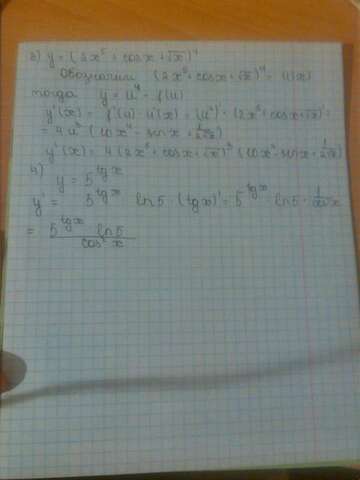 в) y = (2x⁵ + cosx + √x)⁴
Обозначим (2x⁵ + cosx + √x)⁴ = u(x)
тогда y = u⁴ = f(u)
y'(x) = f'(u) · u'(x) = (u⁴)' · (2x⁵ + cosx + √x)' =
= 4u³ (10x⁴ - sinx + 1/2√x)
y'(x) = 4(2x⁵ + cosx + √x)³ (10x⁴ - sinx + 1/2√x)
y = 5^tgx
y' = 5^tgx ln5 · (tgx)' = 5^tgx · ln5 · 1/cos²x
= 5^tgx ln5 / cos²x